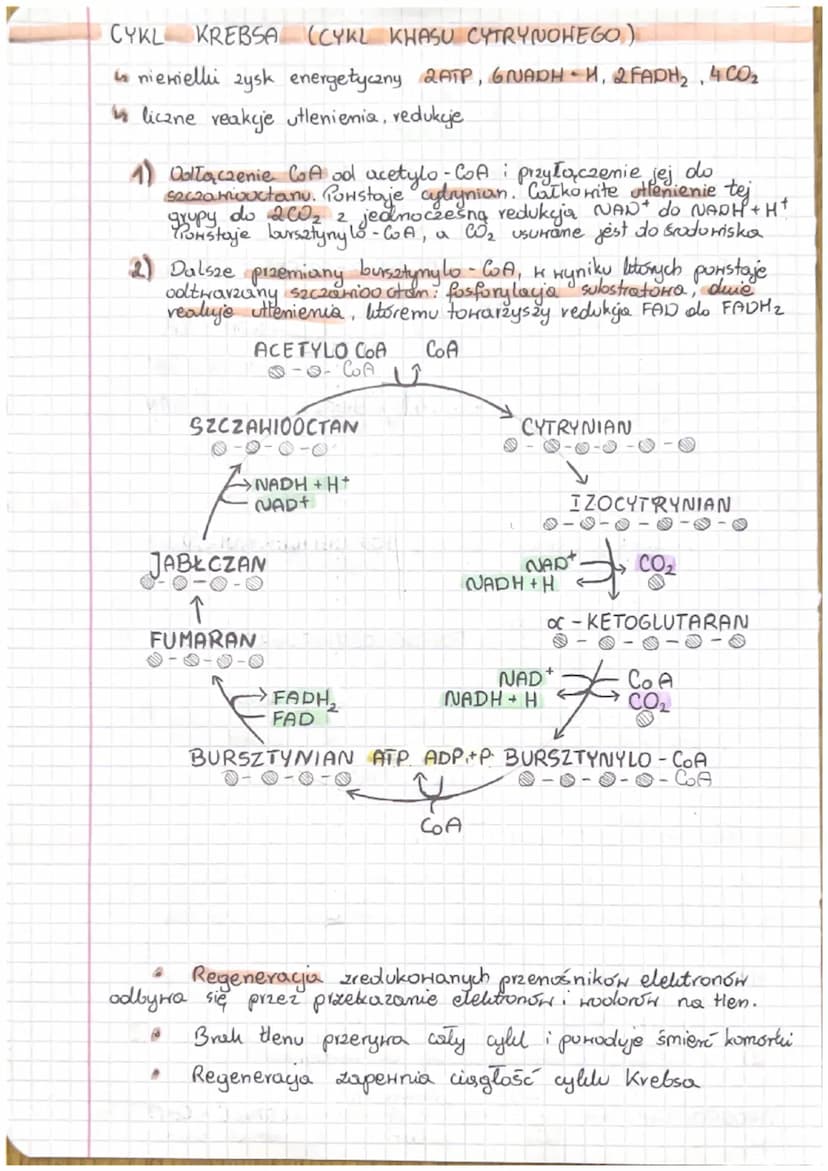 CYKL KREBSA (CYKL KWASU CYTRYNOWEGO)
↳ niewielki zysk energetyczny 2ATP, 6NADH + H, 2FADH₂, 4CO₂
↳ liczne reakcje utlenienia, redukcje
1) Odłączenie CoA od acetylo-CoA i przyłączenie jej do
szczawiooctanu. Powstaje cytrynian. Całkowite utlenienie tej
grupy do 2CO₂ z jednoczesną redukcją NAD⁺ do NADH + H⁺
Powstaje bursztynylo-CoA, a CO₂ usuwane jest do środowiska
2) Dalsze przemiany bursztynylo-CoA, w wyniku których powstaje
odtwarzany szczawiooctan: fosforylacja substratowa, dwie
reakcje utlenienia, któremu towarzyszy redukcja FAD do FADH₂
ACETYLO CoA CoA
CoA
SZCZAWIOOCTAN CYTRYNIAN
NADH + H⁺
NAD⁺
IZOCYTRYNIAN
JABŁCZAN NAD⁺ CO₂
NADH + H
FUMARAN α - KETOGLUTARAN
NAD⁺ CoA
FADH₂ NADH + H CO₂
FAD
BURSZTYNIAN ATP ADP+P BURSZTYNYLO - CoA
CoA
CoA
• Regeneracja zredukowanych przenośników elektronów
odbywa się przez przekazanie elektronów i wodorów na tlen.
• Brak tlenu przerywa cały cykl i powoduje śmierć komórki
• Regeneracja zapewnia ciągłość cyklu Krebsa